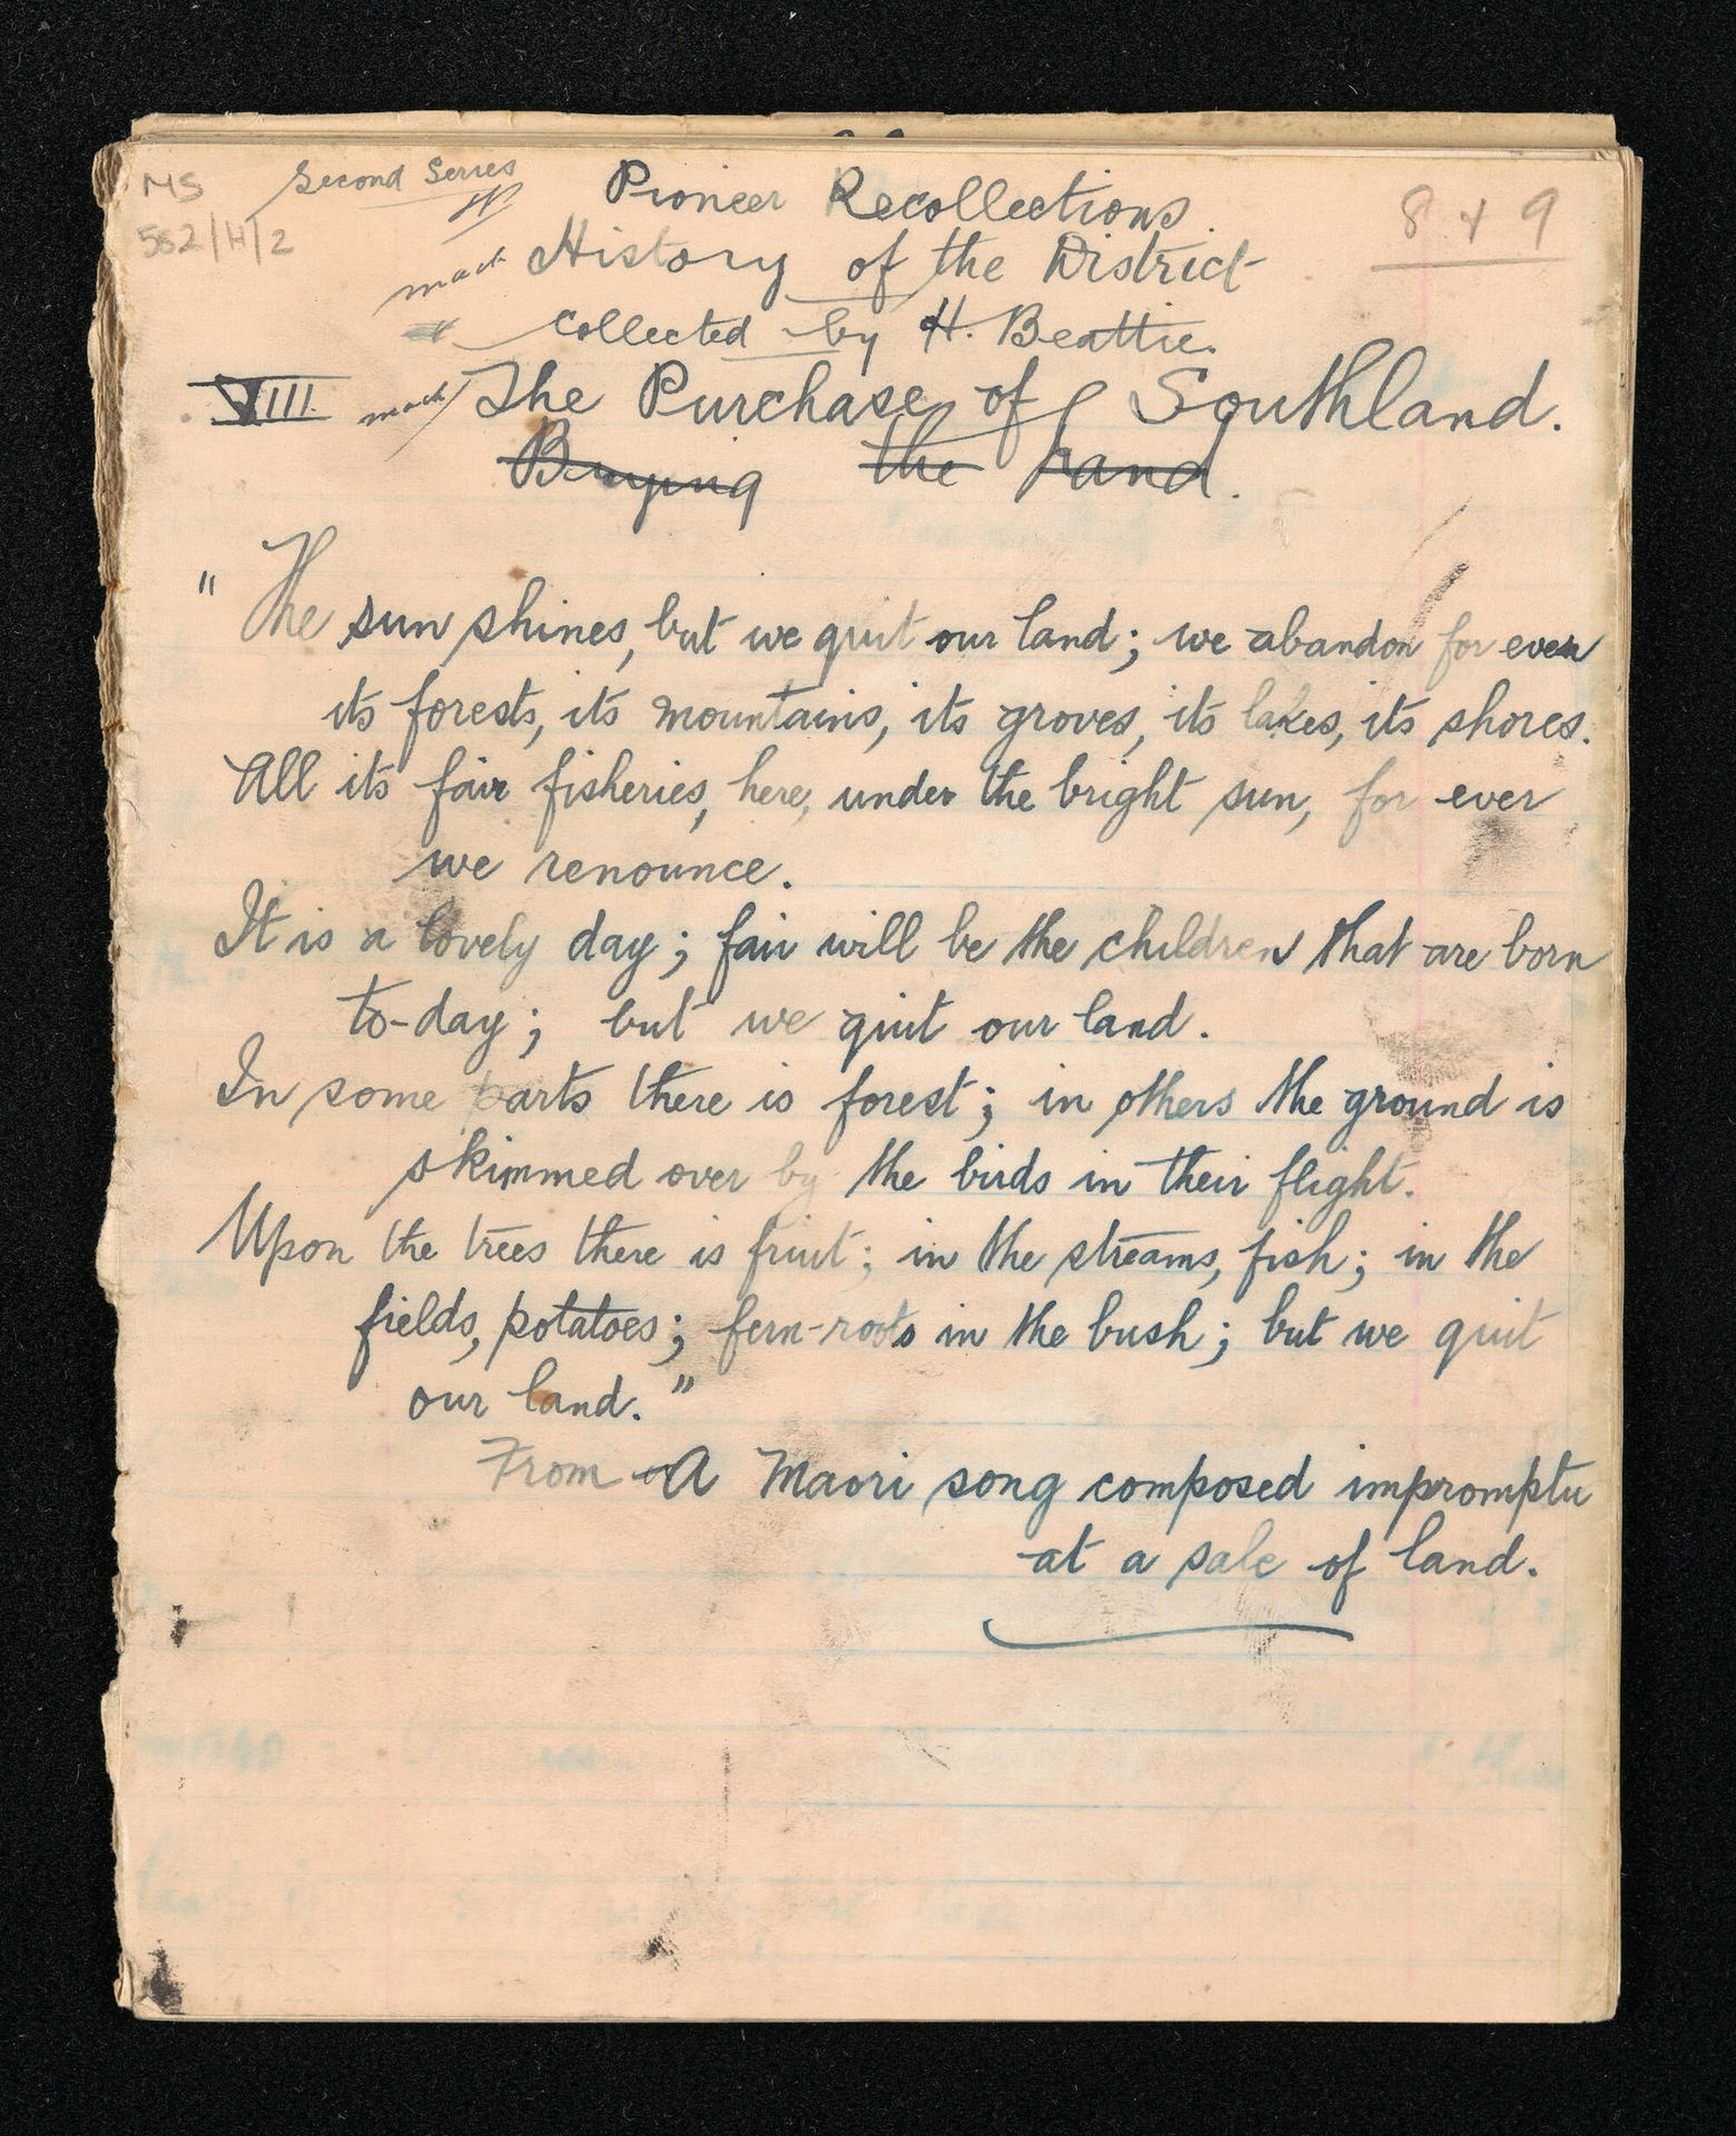 MS
582/H/2
Second Series
Pioneer Recollections.
8 & 9
History of the District
collected by H. Beattie.
VIII. The Purchase of Southland.
Buying the Land.
"The sun shines, but we quit our land; we abandon for ever
its forests, its mountains, its groves, its lakes, its shores.
All its fair fisheries, here, under the bright sun, for ever
we renounce.
It is a lovely day; fair will be the children that are born
to-day; but we quit our land.
In some parts there is forest; in others the ground is
skimmed over by the birds in their flight.
Upon the trees there is fruit; in the streams, fish; in the
fields, potatoes; fern-roots in the bush; but we quit
our land."
From A Maori song composed impromptu
at a sale of land.